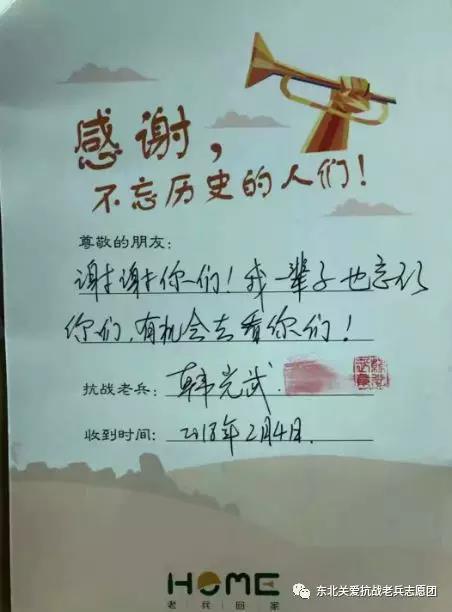 感谢，
不忘历史的人们！
尊敬的朋友：
谢谢你们！我一辈子也忘
你们，有机会去看你们！
抗战老兵：韩光武
收到时间：2018年2月4日.
HOME
老兵回家
东北关爱抗战老兵志愿团